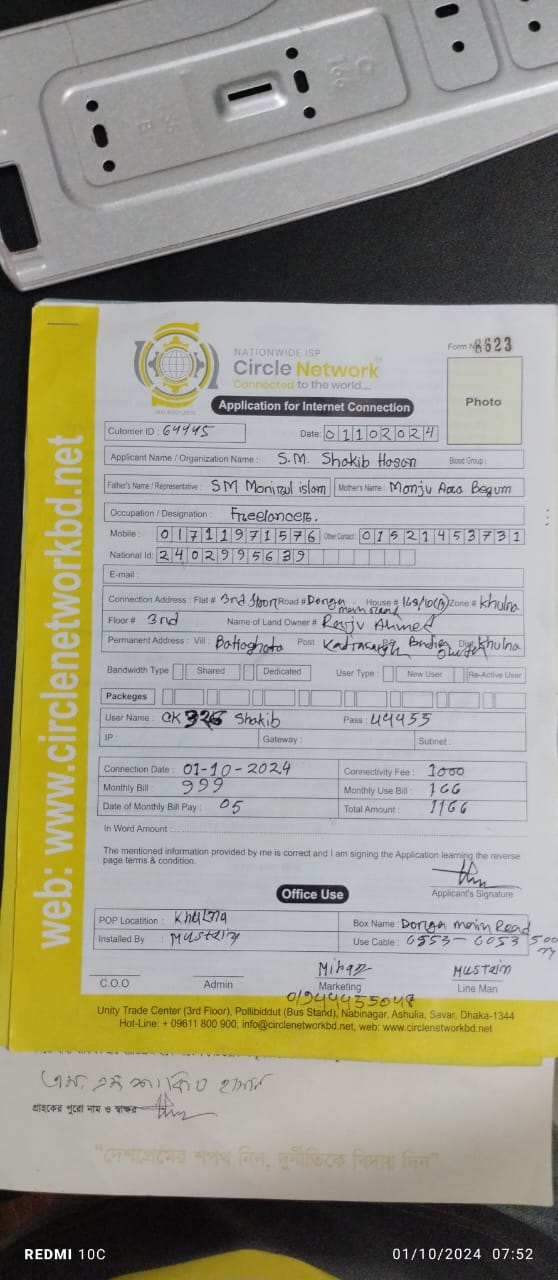 NATIONWIDE ISP
Circle Network
Connected to the world....
ISO 9001:2015
Form N 8623
Photo
Application for Internet Connection
Cutomer ID : 64445 Date: 01102024
Applicant Name / Organization Name : S.M. Shakib Hasan Blood Group :
Father's Name / Representative : SM Monirul islam Mother's Name : Monju Ara Begum
Occupation / Designation : Freelancer.
Mobile : 01711971576 Other Contact : 01521453731
National Id: 2402995639
E-mail :
Connection Address : Flat # 3rd floor Road # Donga main Road House # 169/10(A) Zone # Khulna
Floor# 3rd Name of Land Owner # Raju Ahmed
Permanent Address : Vill : Batiaghata Post : Dist Khulna
Bandwidth Type Shared Dedicated User Type : New User Re-Active User
Packeges
User Name : CK Shakib Pass : 44455
IP : Gateway : Subnet :
Connection Date : 01-10-2024 Connectivity Fee : 1000
Monthly Bill : 999 Monthly Use Bill : 166
Date of Monthly Bill Pay : 05 Total Amount : 1166
In Word Amount :
The mentioned information provided by me is correct and I am signing the Application learning the reverse
page terms & condition.
Applicant's Signature
Office Use
POP Locatition : Khulna Box Name : Donga main Road
Installed By : Mustain Use Cable : 6553 - 6053 500 m
Miraz Mustain
C.O.O Admin Marketing Line Man
01944455048
Unity Trade Center (3rd Floor), Pollibiddut (Bus Stand), Nabinagar, Ashulia, Savar, Dhaka-1344
Hot-Line: + 09611 800 900, info@circlenetworkbd.net, web: www.circlenetworkbd.net
web: www.circlenetworkbd.net
এস, এম শাকিব হাসান
গ্রাহকের পুরো নাম ও স্বাক্ষর
"দেশপ্রেমের শপথ নিন, দুর্নীতিকে বিদায় দিন"
REDMI 10C 01/10/2024 07:52